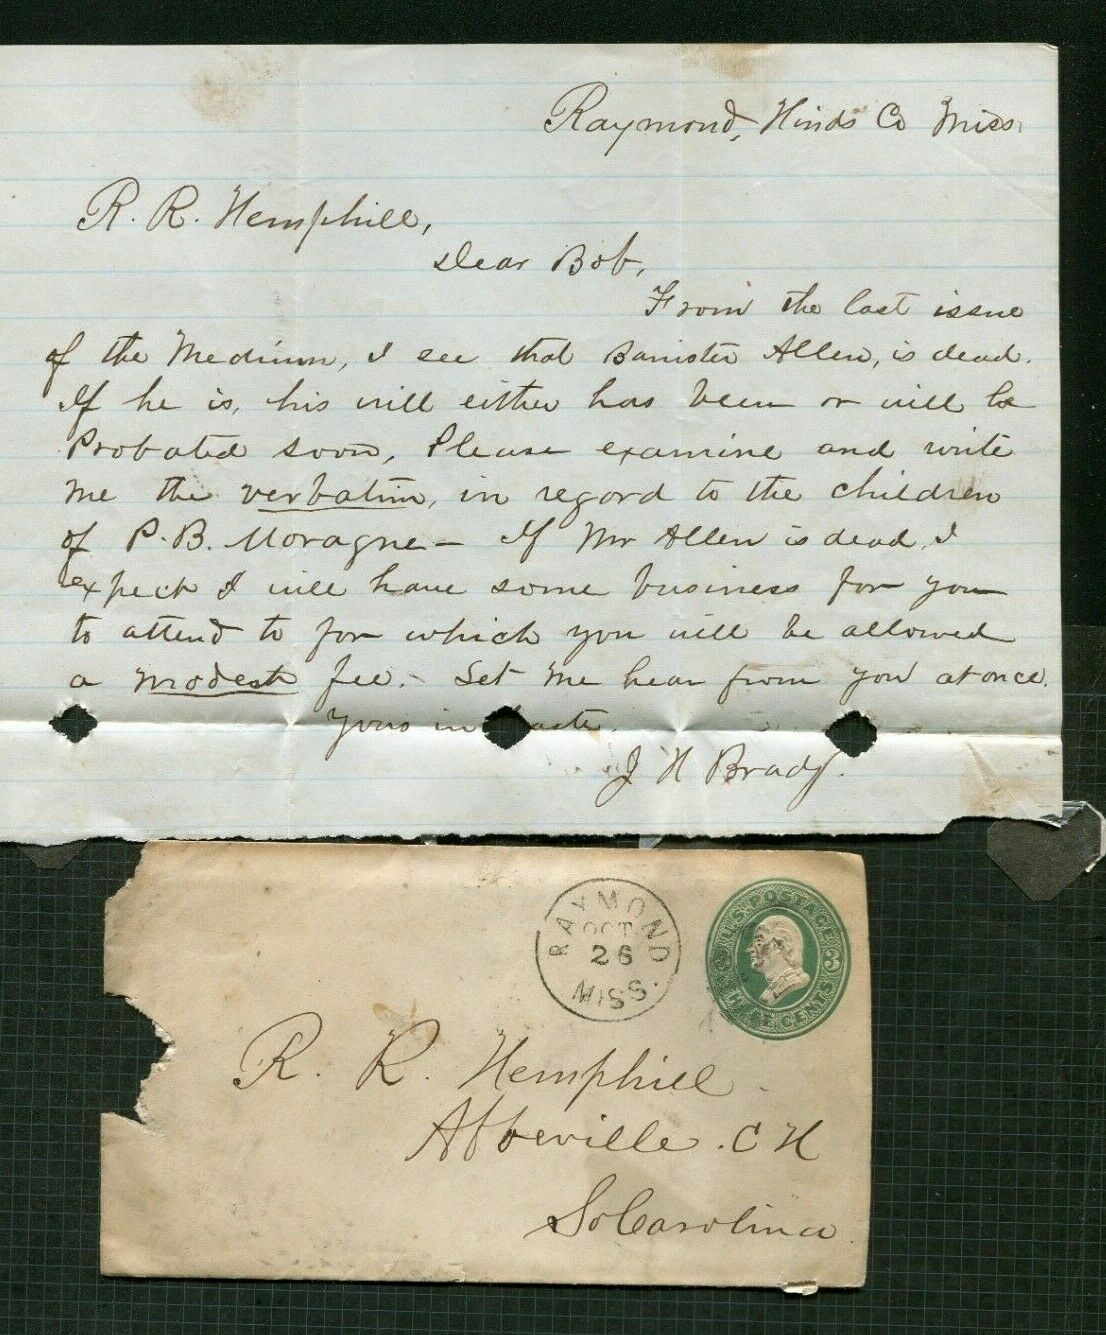 Raymond, Hinds Co Miss.
R. R. Hemphill,
Dear Bob,
From the last issue
of the Medium, I see that Banister Allen, is dead.
If he is, his will either has been or will be
Probated soon, Please examine and write
me the verbatim, in regard to the children
of P. B. Moragne - If Mr Allen is dead, I
expect I will have some business for you
to attend to for which you will be allowed
a modest fee. - Let me hear from you at once.
Yours in haste,
J H Brady.
RAYMOND
OCT
26
MISS.
U.S. POSTAGE
3 3
THREE CENTS
R. R. Hemphill
Abbeville. C H
So Carolina